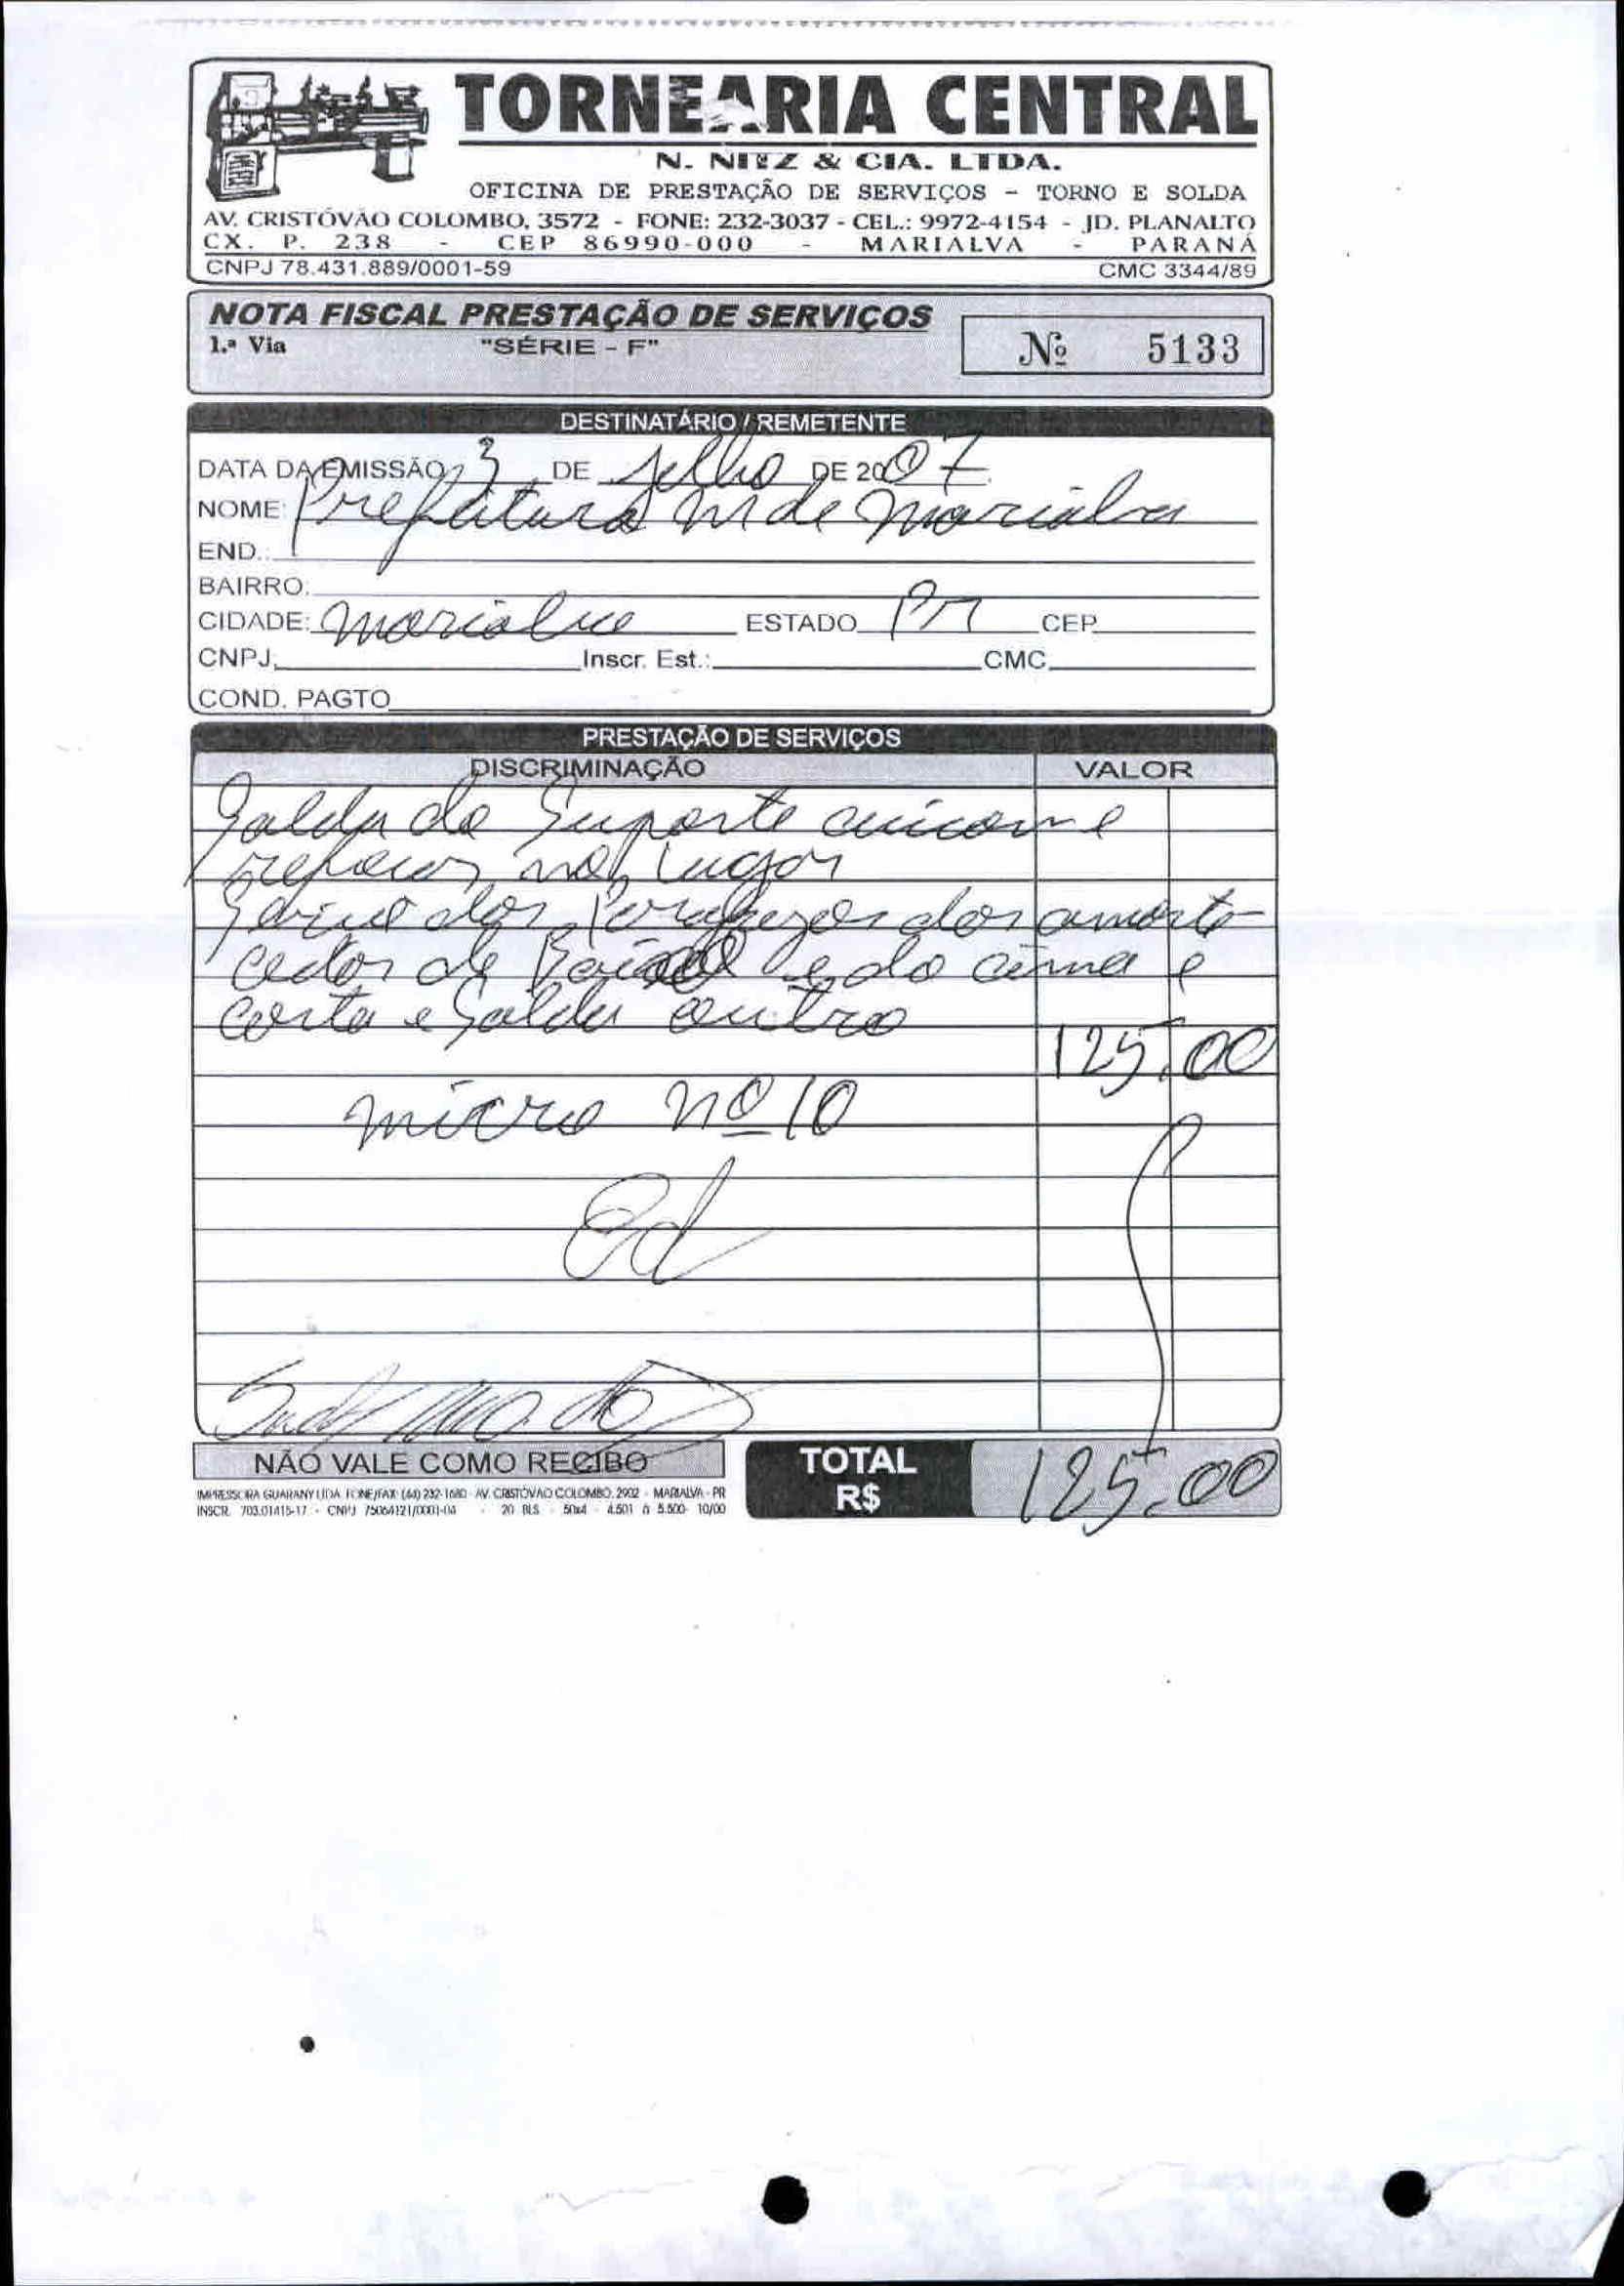 TORNEARIA CENTRAL
N. NITZ & CIA. LTDA.
OFICINA DE PRESTAÇÃO DE SERVIÇOS - TORNO E SOLDA
AV. CRISTÓVÃO COLOMBO, 3572 - FONE: 232-3037 - CEL.: 9972-4154 - JD. PLANALTO
CX. P. 238 - CEP 86990-000 - MARIALVA - PARANÁ
CNPJ 78.431.889/0001-59 CMC 3344/89
NOTA FISCAL PRESTAÇÃO DE SERVIÇOS
1.ª Via "SÉRIE - F" Nº 5133
DESTINATÁRIO / REMETENTE
DATA DA EMISSÃO 3 DE Julho DE 2007
NOME: Prefeitura M de Marialva
END.:
BAIRRO:
CIDADE: Marialva ESTADO Pr CEP
CNPJ: Inscr. Est.: CMC
COND. PAGTO
PRESTAÇÃO DE SERVIÇOS
DISCRIMINAÇÃO VALOR
Salda do Suporte e
no lugar
dos Parafuzos dos amorte-
cedor de Baixo e do cima e
corta e Salda outro
125,00
micro nº 10
NÃO VALE COMO RECIBO TOTAL R$ 125,00
IMPRESSORA GUARANY LTDA. FONE/FAX: (44) 232-1680 - AV. CRISTÓVÃO COLOMBO, 2902 - MARIALVA - PR
INSCR. 703.01415-17 - CNPJ 75064121/0001-04 - 20 BLS - 50x4 - 4.501 à 5.500 - 10/00